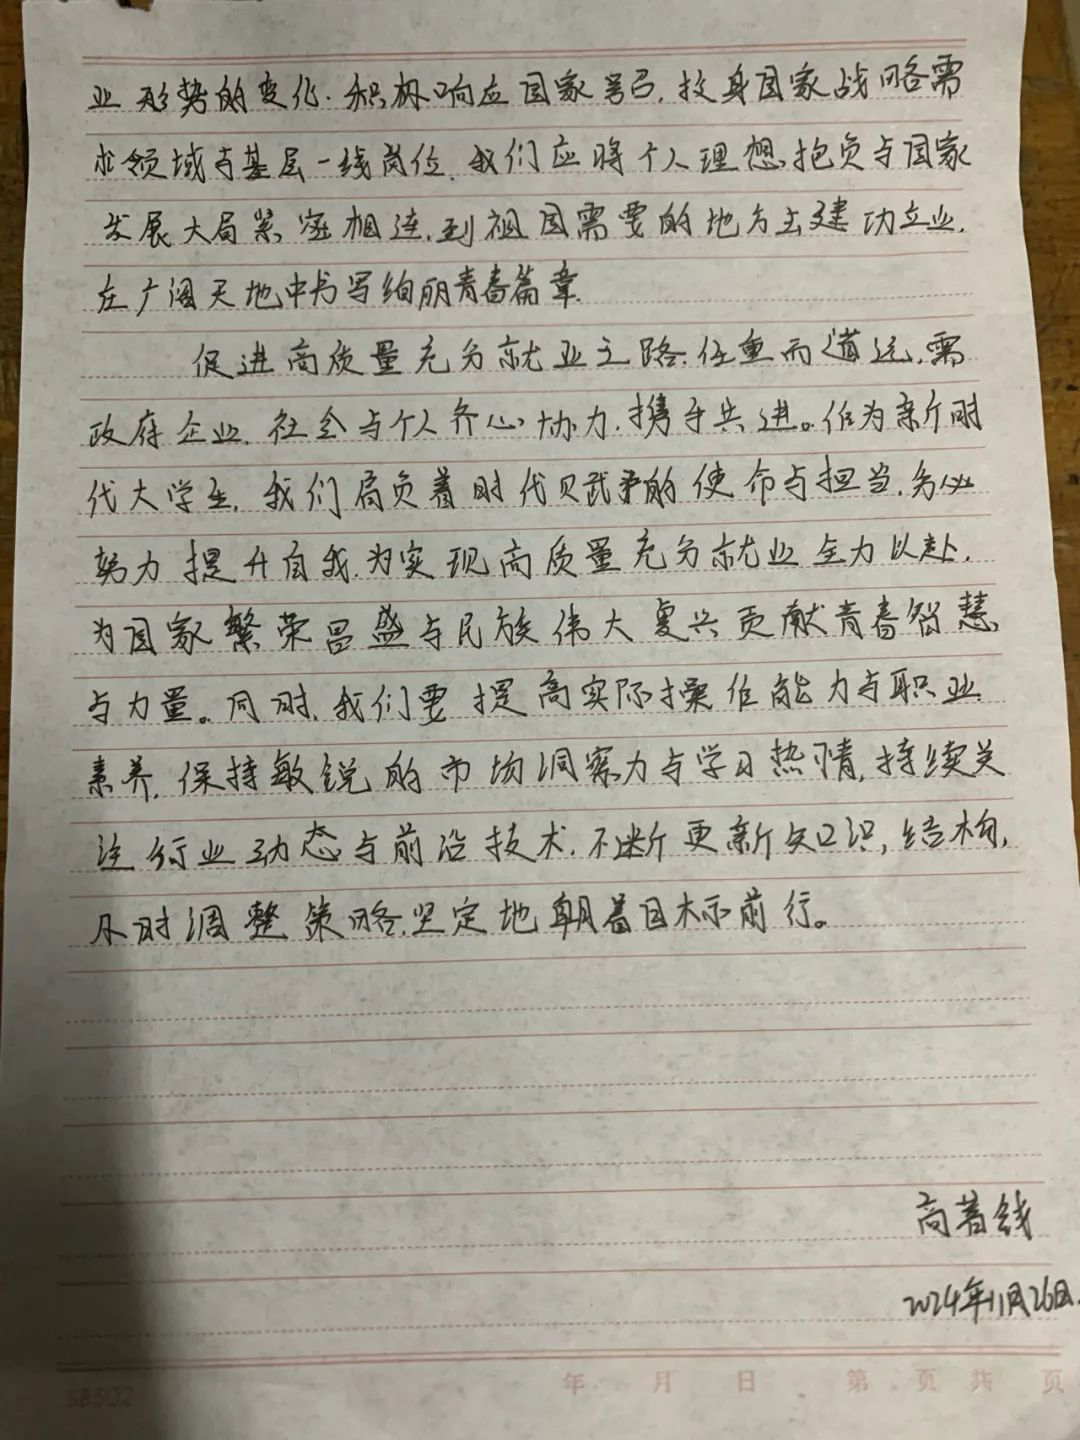 业形势的变化.积极响应国家号召,投身国家战略需
求领域与基层一线岗位.我们应将个人理想、抱负与国家
发展大局紧密相连.到祖国需要的地方去建功立业.
在广阔天地中书写绚丽青春篇章.
促进高质量充分就业之路.任重而道远.需
政府企业.社会与个人齐心协力.携手共进。作为新时
代大学生.我们肩负着时代赋予的使命与担当.务必
努力提升自我.为实现高质量充分就业全力以赴.
为国家繁荣昌盛与民族伟大复兴贡献青春智慧
与力量。同时.我们要提高实际操作能力与职业
素养.保持敏锐的市场洞察力与学习热情,持续关
注行业动态与前沿技术.不断更新知识,结构,
及时调整策略.坚定地朝着目标前行。
高
2024年11月26日.
SB502 年 月 日 第 页 共 页